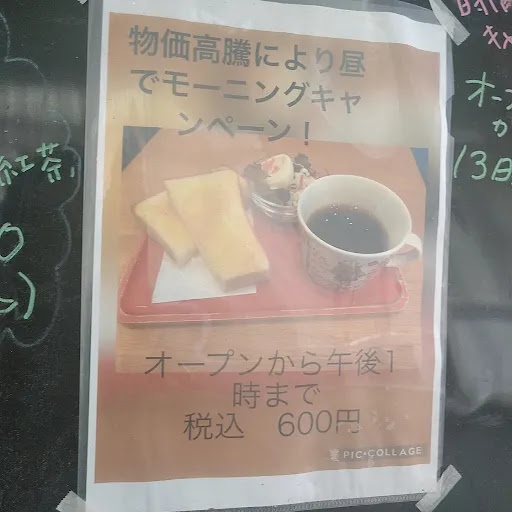 物価高騰により昼
でモーニングキャ
ンペーン！
オープンから午後1
時まで
税込　600円
PIC•COLLAGE
紅茶
オープ
か
13日